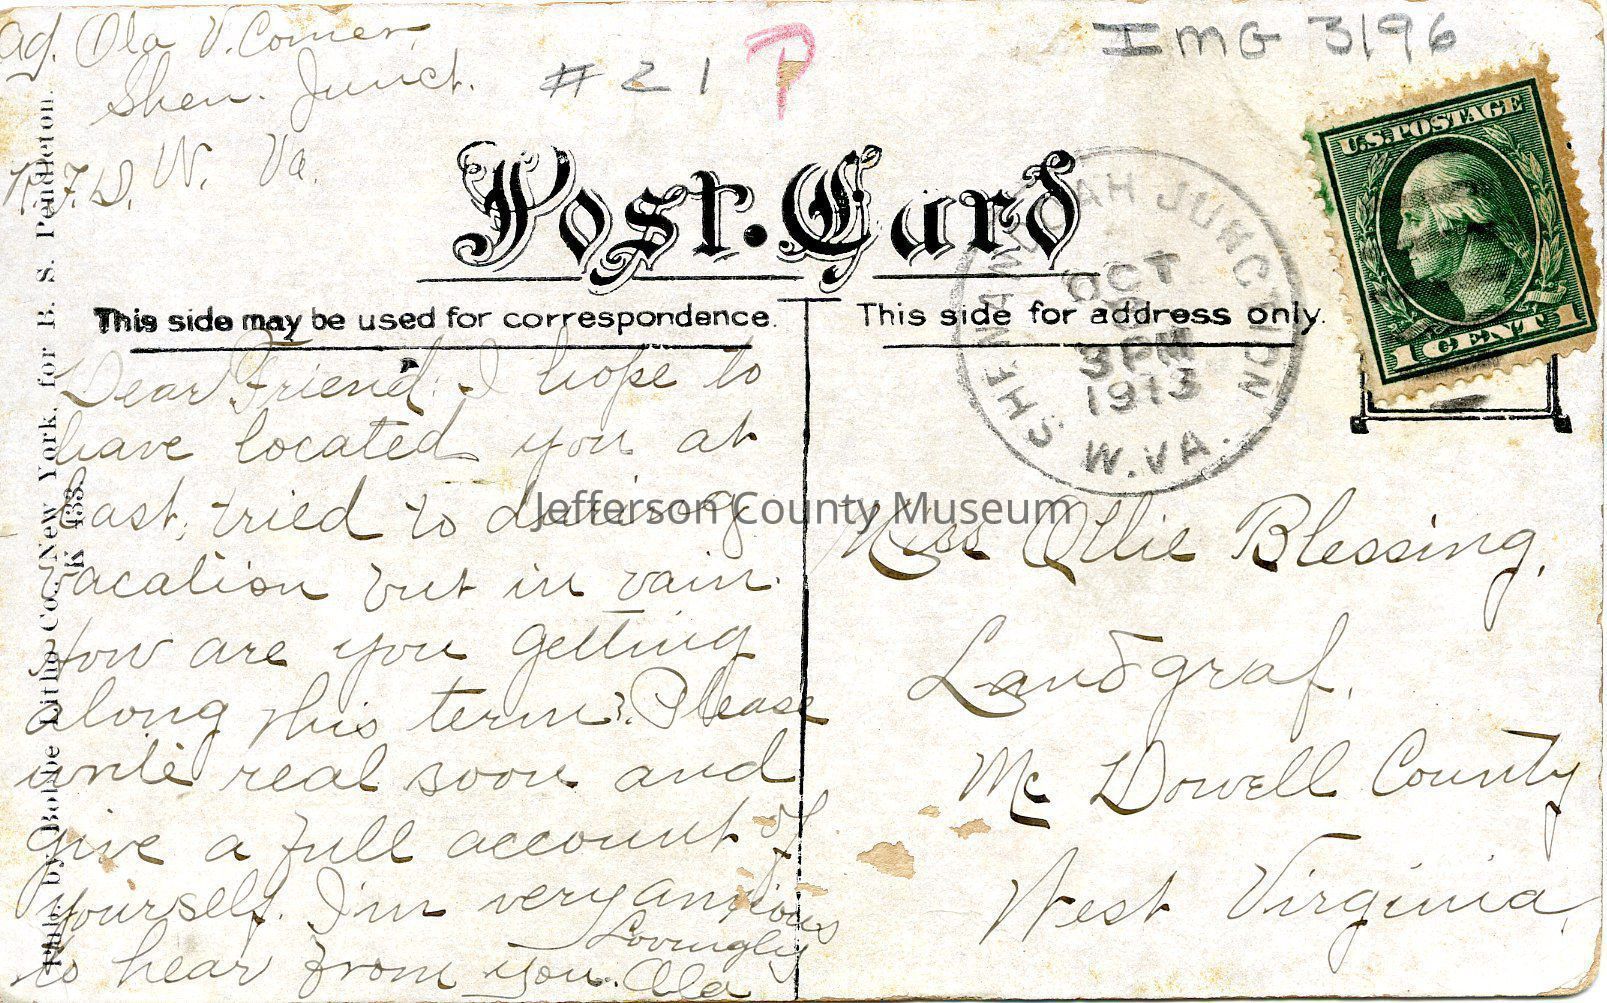 Ad. Ola V. Comer.
Shen. Junct.
W. Va.
R.F.D.
#21
P
IMG 3196
U.S. POSTAGE
1 CENT 1
Post Card
SHENANDOAH JUNCTION
OCT
3 PM
1913
W. VA.
This side may be used for correspondence.
This side for address only.
Dear Friend: I hope to
have located you at
last, tried to during
vacation but in vain.
How are you getting
along this term? Please
write real soon and
give a full account of
yourself. I'm very anxious
to hear from you.
Lovingly
Ola
Miss Ollie Blessing,
Landgraf,
Mc Dowell County
West Virginia,
Jefferson County Museum
Litho Co., New York, for B. S. Pendleton.
K 433